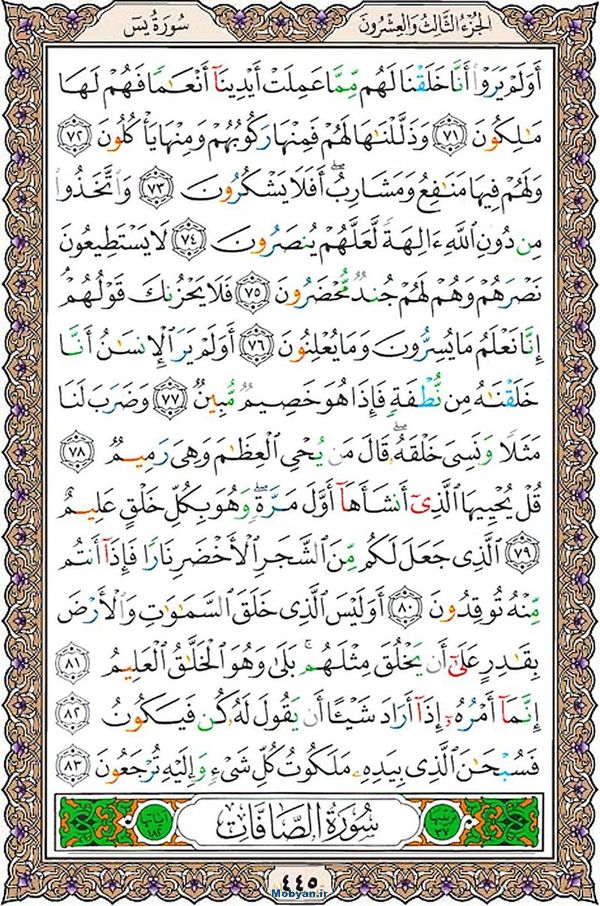 سُورَةُ يسٓ
الجُزْءُ الثَّالِثُ وَالعِشْرُونَ
أَوَلَمْ يَرَوْا۟ أَنَّا خَلَقْنَا لَهُم مِّمَّا عَمِلَتْ أَيْدِينَآ أَنْعَـٰمًا فَهُمْ لَهَا
مَـٰلِكُونَ ٧١ وَذَلَّلْنَـٰهَا لَهُمْ فَمِنْهَا رَكُوبُهُمْ وَمِنْهَا يَأْكُلُونَ ٧٢
وَلَهُمْ فِيهَا مَنَـٰفِعُ وَمَشَارِبُ ۖ أَفَلَا يَشْكُرُونَ ٧٣ وَٱتَّخَذُوا۟
مِن دُونِ ٱللَّهِ ءَالِهَةً لَّعَلَّهُمْ يُنصَرُونَ ٧٤ لَا يَسْتَطِيعُونَ
نَصْرَهُمْ وَهُمْ لَهُمْ جُندٌ مُّحْضَرُونَ ٧٥ فَلَا يَحْزُنكَ قَوْلُهُمْ ۘ
إِنَّا نَعْلَمُ مَا يُسِرُّونَ وَمَا يُعْلِنُونَ ٧٦ أَوَلَمْ يَرَ ٱلْإِنسَـٰنُ أَنَّا
خَلَقْنَـٰهُ مِن نُّطْفَةٍ فَإِذَا هُوَ خَصِيمٌ مُّبِينٌ ٧٧ وَضَرَبَ لَنَا
مَثَلًا وَنَسِىَ خَلْقَهُۥ ۖ قَالَ مَن يُحْىِ ٱلْعِظَـٰمَ وَهِىَ رَمِيمٌ ٧٨
قُلْ يُحْيِيهَا ٱلَّذِىٓ أَنشَأَهَآ أَوَّلَ مَرَّةٍ ۖ وَهُوَ بِكُلِّ خَلْقٍ عَلِيمٌ
٧٩ ٱلَّذِى جَعَلَ لَكُم مِّنَ ٱلشَّجَرِ ٱلْأَخْضَرِ نَارًا فَإِذَآ أَنتُم
مِّنْهُ تُوقِدُونَ ٨٠ أَوَلَيْسَ ٱلَّذِى خَلَقَ ٱلسَّمَـٰوَٰتِ وَٱلْأَرْضَ
بِقَـٰدِرٍ عَلَىٰٓ أَن يَخْلُقَ مِثْلَهُم ۚ بَلَىٰ وَهُوَ ٱلْخَلَّـٰقُ ٱلْعَلِيمُ ٨١
إِنَّمَآ أَمْرُهُۥٓ إِذَآ أَرَادَ شَيْـًٔا أَن يَقُولَ لَهُۥ كُن فَيَكُونُ ٨٢
فَسُبْحَـٰنَ ٱلَّذِى بِيَدِهِۦ مَلَكُوتُ كُلِّ شَىْءٍ وَإِلَيْهِ تُرْجَعُونَ ٨٣
ترتيبها ٣٧
سُورَةُ الصَّافَّاتِ
آياتها ١٨٢
٤٤٥
Mobyan.ir